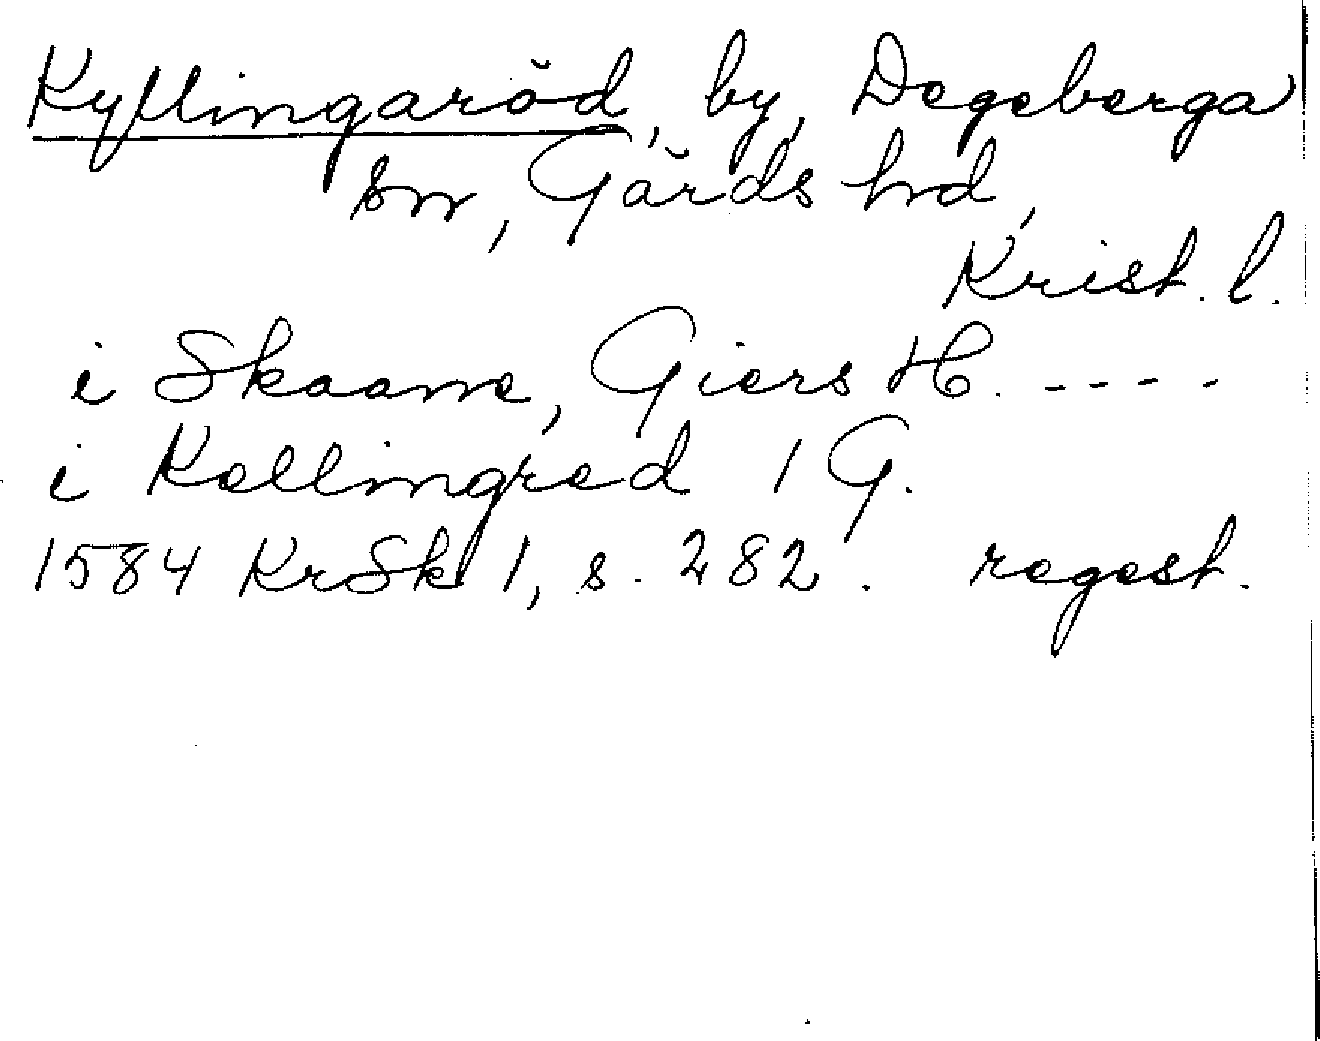 Kyllingaröd, by, Degeberga
sn, Gärds hd,
Krist. l.
i Skaane, Giers H. ----
i Kellingred 1 G.
1584 KrSk 1, s. 282. regest.